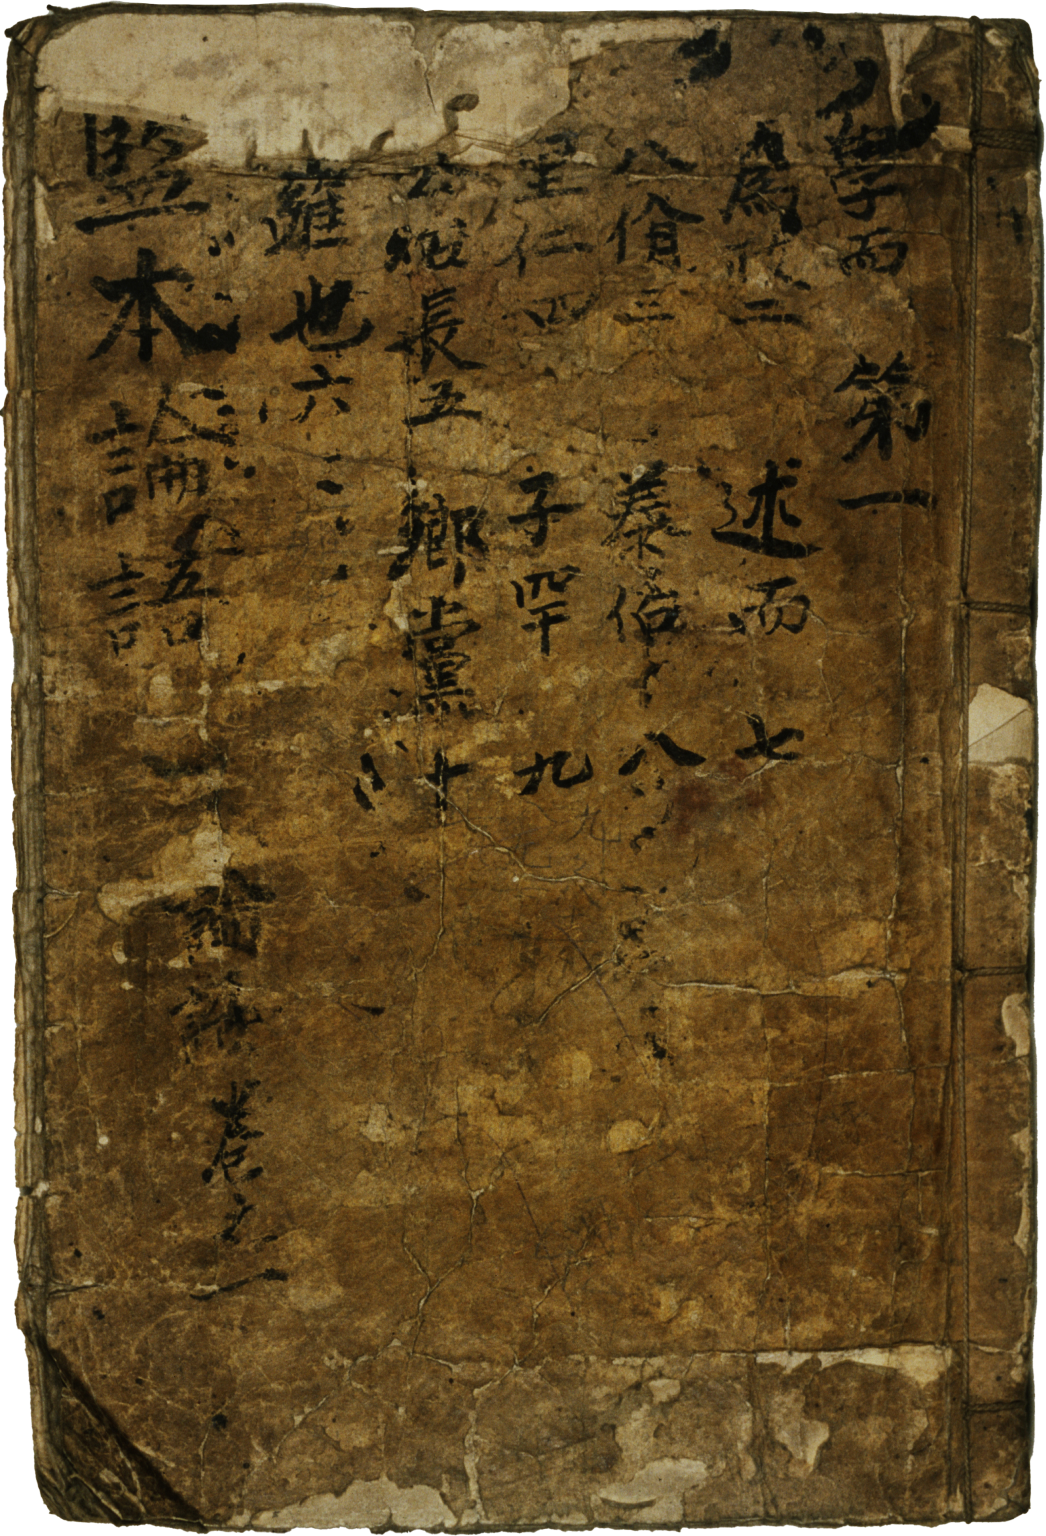 學而 第一
爲政二 述而 七
八佾三 泰伯 八
里仁四 子罕 九
公冶長五 鄕黨 十
雍也六
監本論語
卷之一